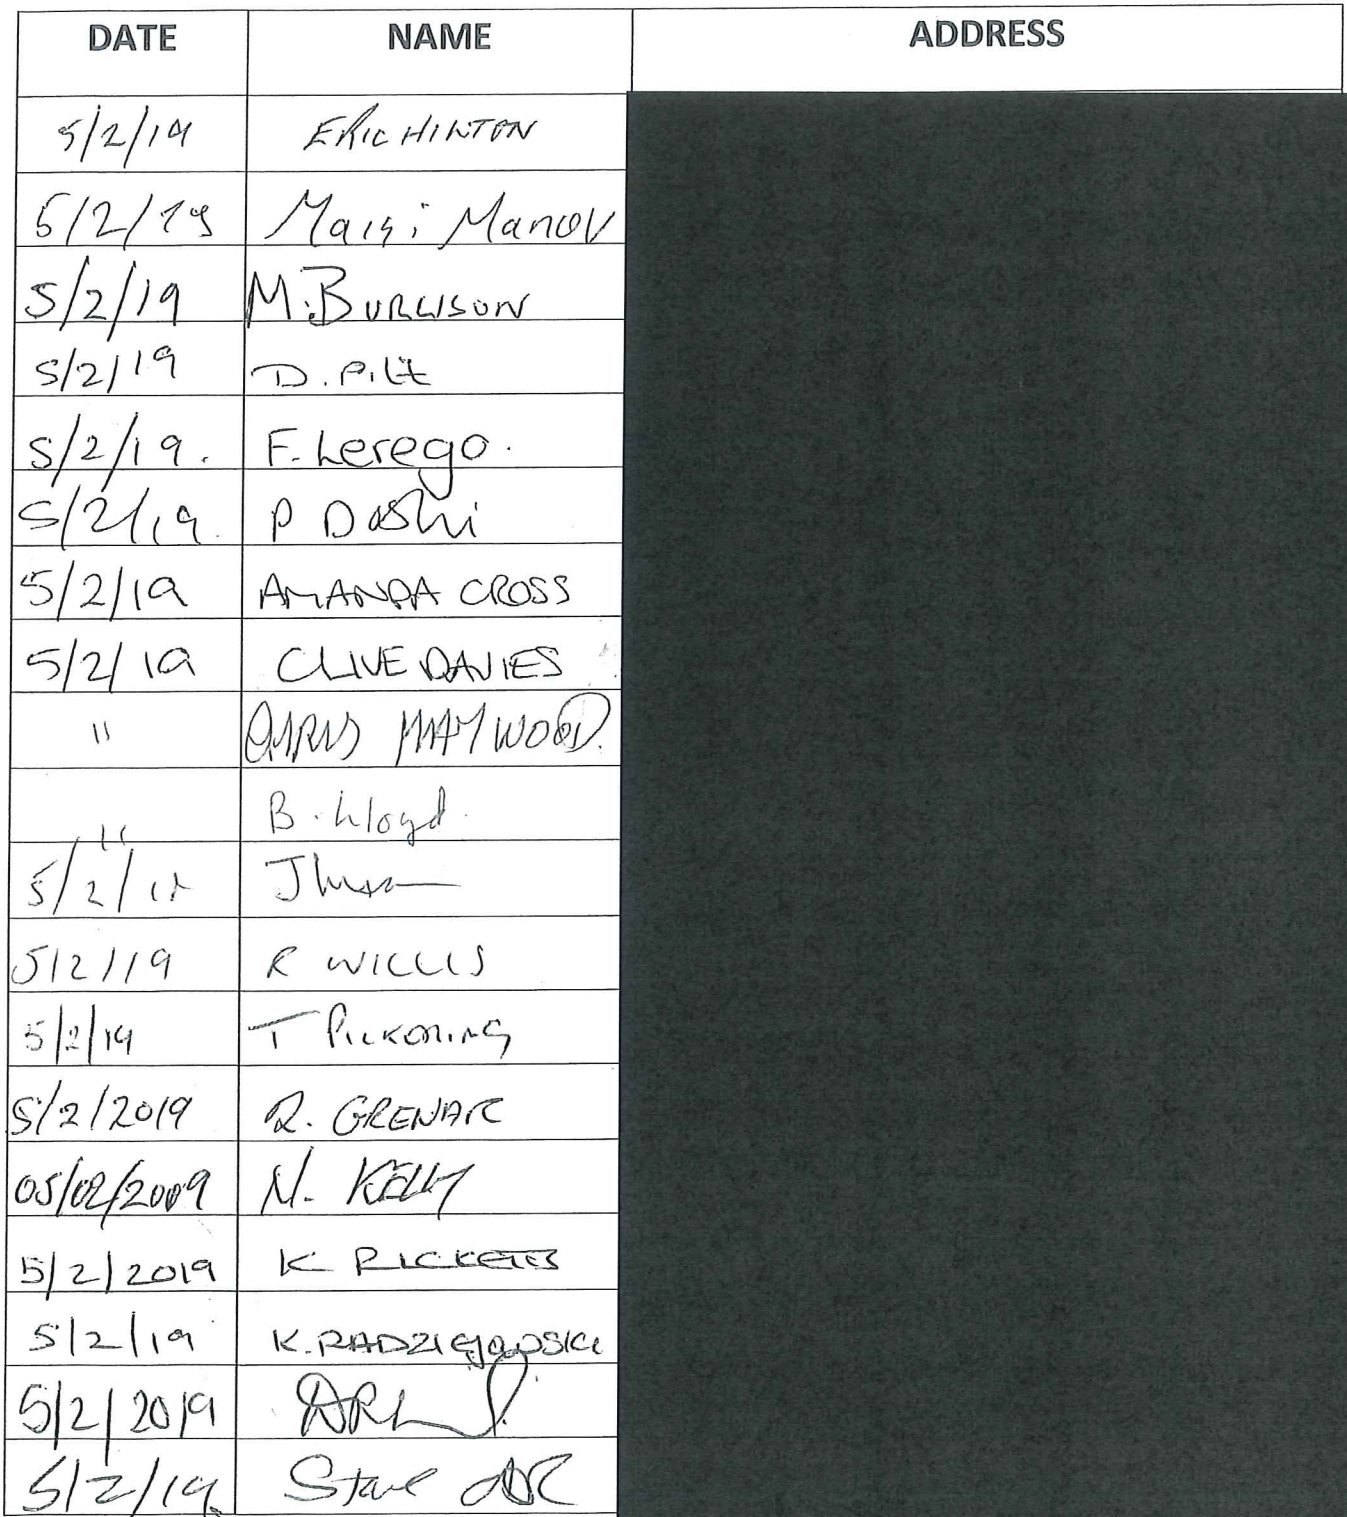 DATE NAME ADDRESS
5/2/19 ERIC HINTON
5/2/19 Manov
5/2/19 M. BURLISON
5/2/19 D. Pitt
5/2/19. F. Lerego.
5/2/19. P Doshi
5/2/19 AMANDA CROSS
5/2/19 CLIVE DAVIES
" CHRIS HAYWOOD.
" B. Lloyd.
5/2/19
5/2/19 R WILLIS
5/2/19 T Pickering
5/2/2019 R. GRENAR
05/02/2009 N. KELLY
5/2/2019 K RICKETTS
5/2/19 K.
5/2/2019
5/2/19 Steve